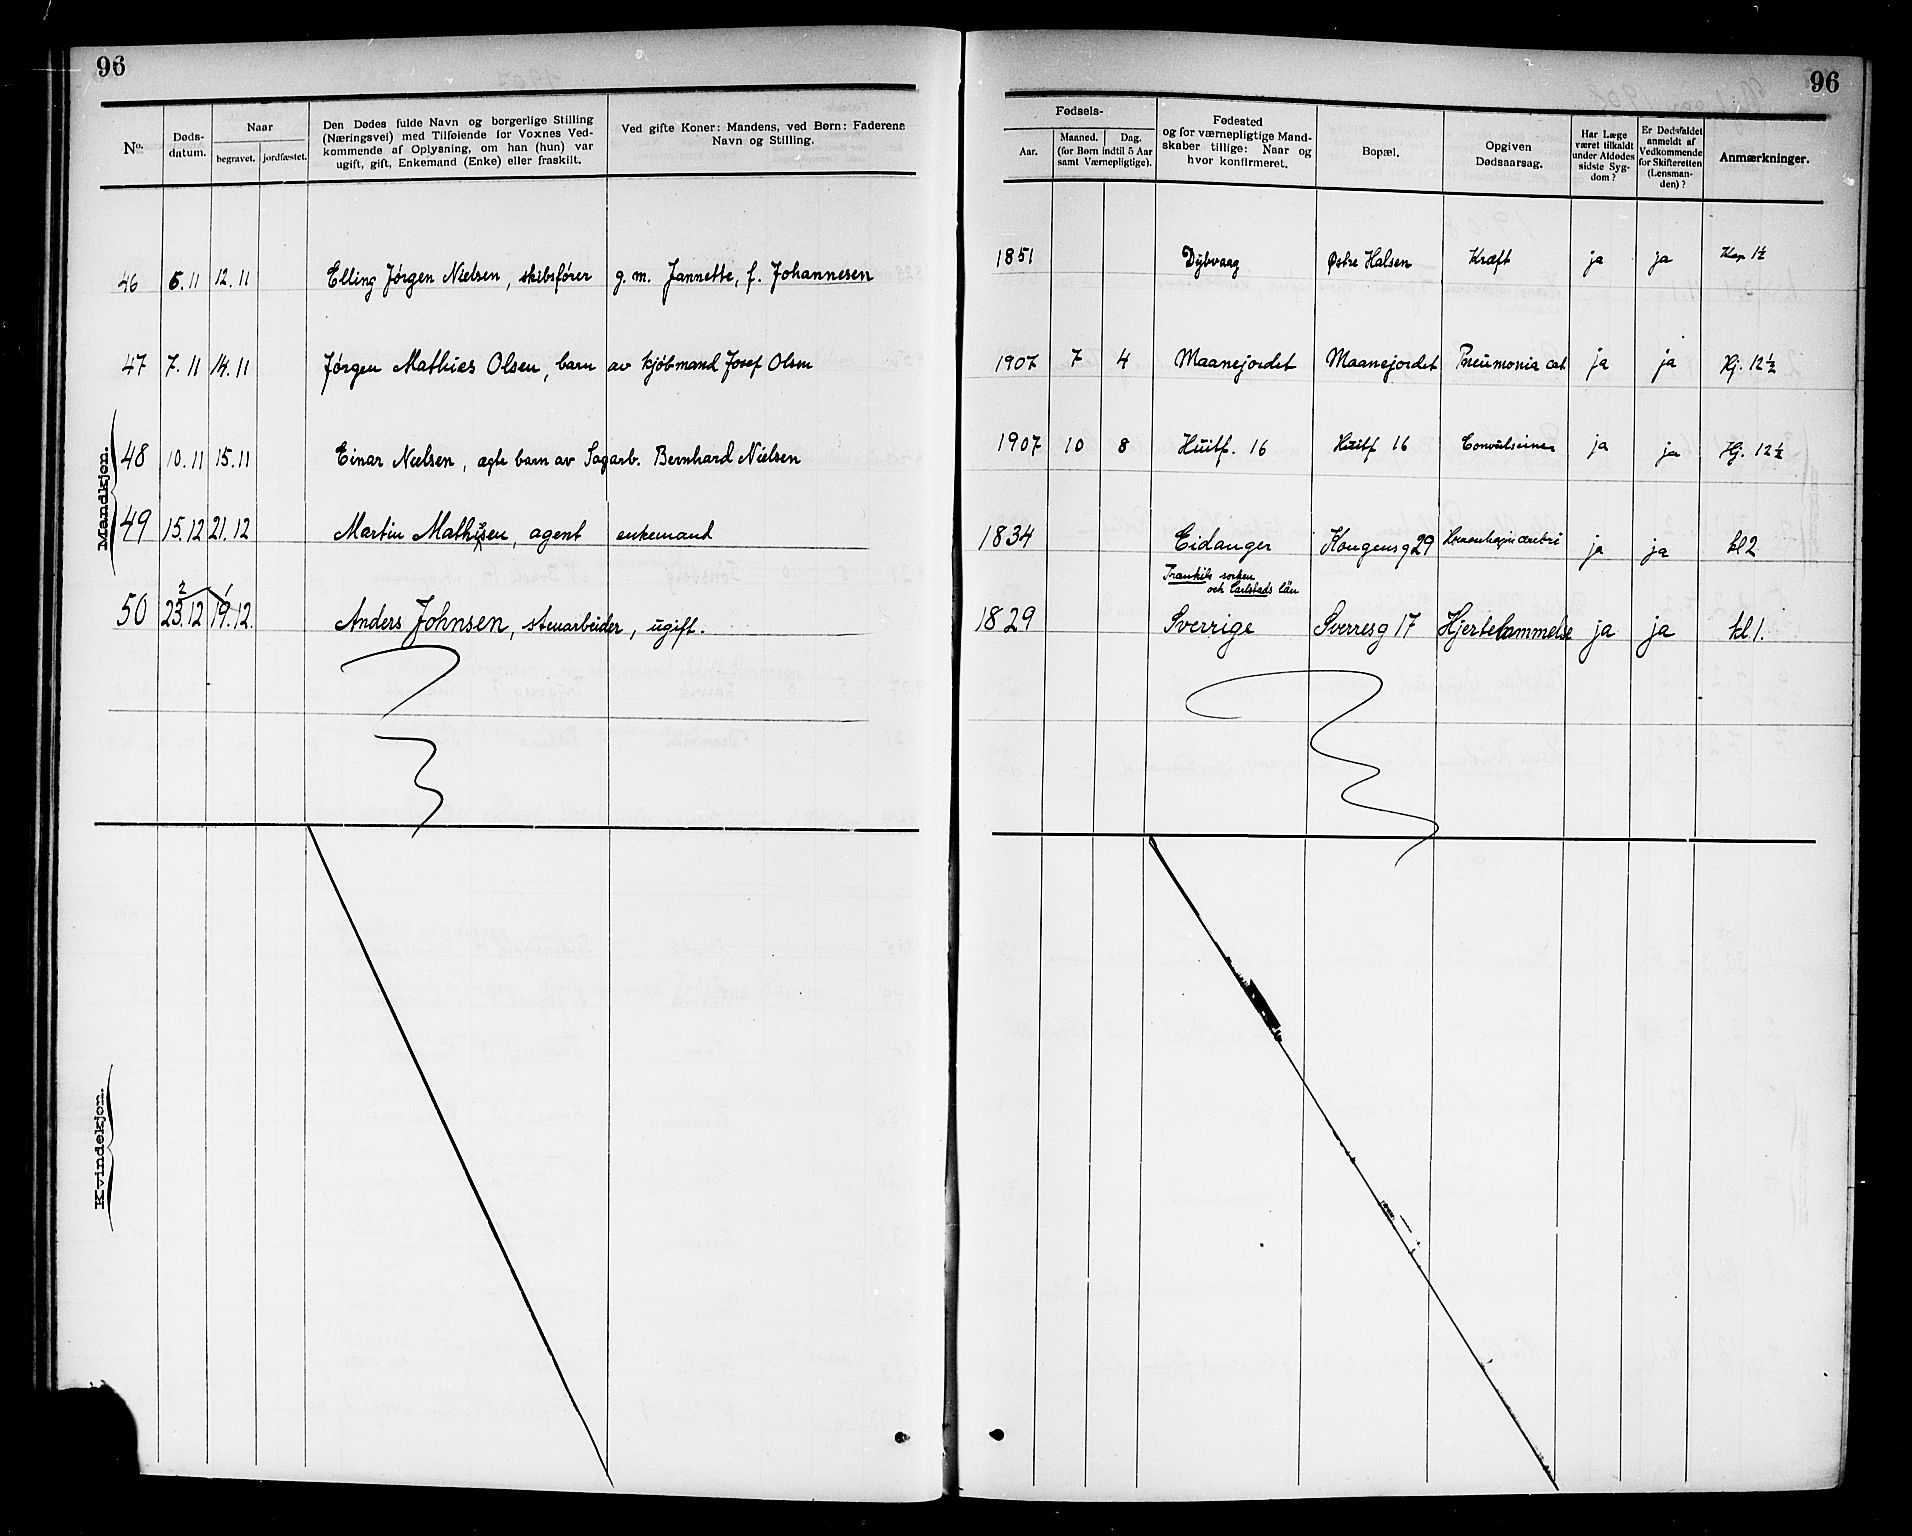 96
96
No.
Døds-datum.
Naar
begravet.
jordfæstet.
Den Dødes fulde Navn og borgerlige Stilling
(Næringsvei) med Tilføiende for Voxnes Ved-
kommende af Oplysning, om han (hun) var
ugift, gift, Enkemand (Enke) eller fraskilt.
Ved gifte Koner: Mandens, ved Børn: Faderens
Navn og Stilling.
Fødsels-
Aar.
Maaned. Dag.
(for Børn indtil 5 Aar
samt Værnepligtige).
Fødested
og for værnepligtige Mand-
skaber tillige: Naar og
hvor konfirmeret.
Bopæl.
Opgiven
Dødsaarsag.
Har Læge
været tilkaldt
under Afdødes
sidste Syg-
dom?
Er Dødsfaldet
anmeldt af
Vedkommende
for Skifteretten
(Lensman-
den)?
Anmærkninger.
Mandkjøn.
46 6.11 12.11 Elling Jørgen Nielsen, skibsfører g. m. Jannette, f. Johannesen 1851 Dybvaag Østre Halsen Kræft ja ja Kap 1½
47 7.11 14.11 Jørgen Mathies Olsen, barn av kjøbmand Josef Olsen 1907 7 4 Maanejordet Maanejordet Pneumonia cat ja ja Kj. 12½
48 10.11 15.11 Einar Nielsen, ægte barn av Sagarb. Bernhard Nielsen 1907 10 8 Huitf. 16 Huitf 16 Convulsiones ja ja Hj. 12½
49 15.12 21.12 Martin Mathisen, agent enkemand 1834 Eidanger Kongensg 29 ja ja kl 2
sorken
och Carlstads län
50 23.12 19.12. Anders Johnsen, stenarbeider, ugift. 1829 Sverrige Sverresg 17 Hjertelammelse ja ja kl 1.
2 1
Kvindekjøn.